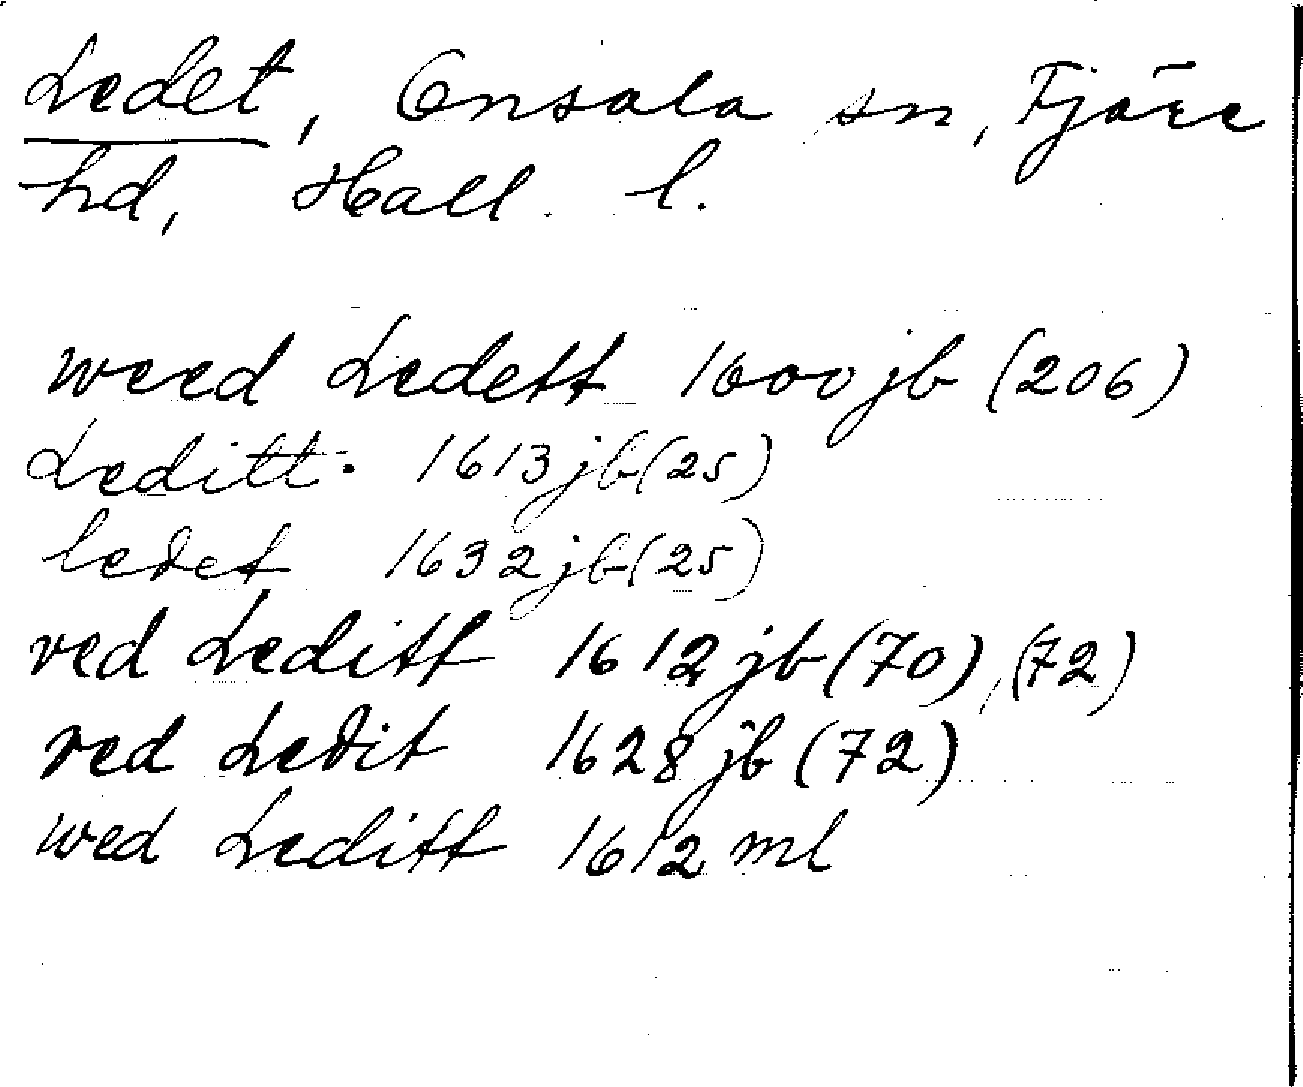 Ledet, Onsala sn, Fjäre
hd, Hall. l.
weed Ledett 1600 jb (206)
Leditt 1613 jb (25)
ledet 1632 jb (25)
ved Leditt 1612 jb (70), (72)
ved Ledit 1628 jb (72)
wed Leditt 1612 ml